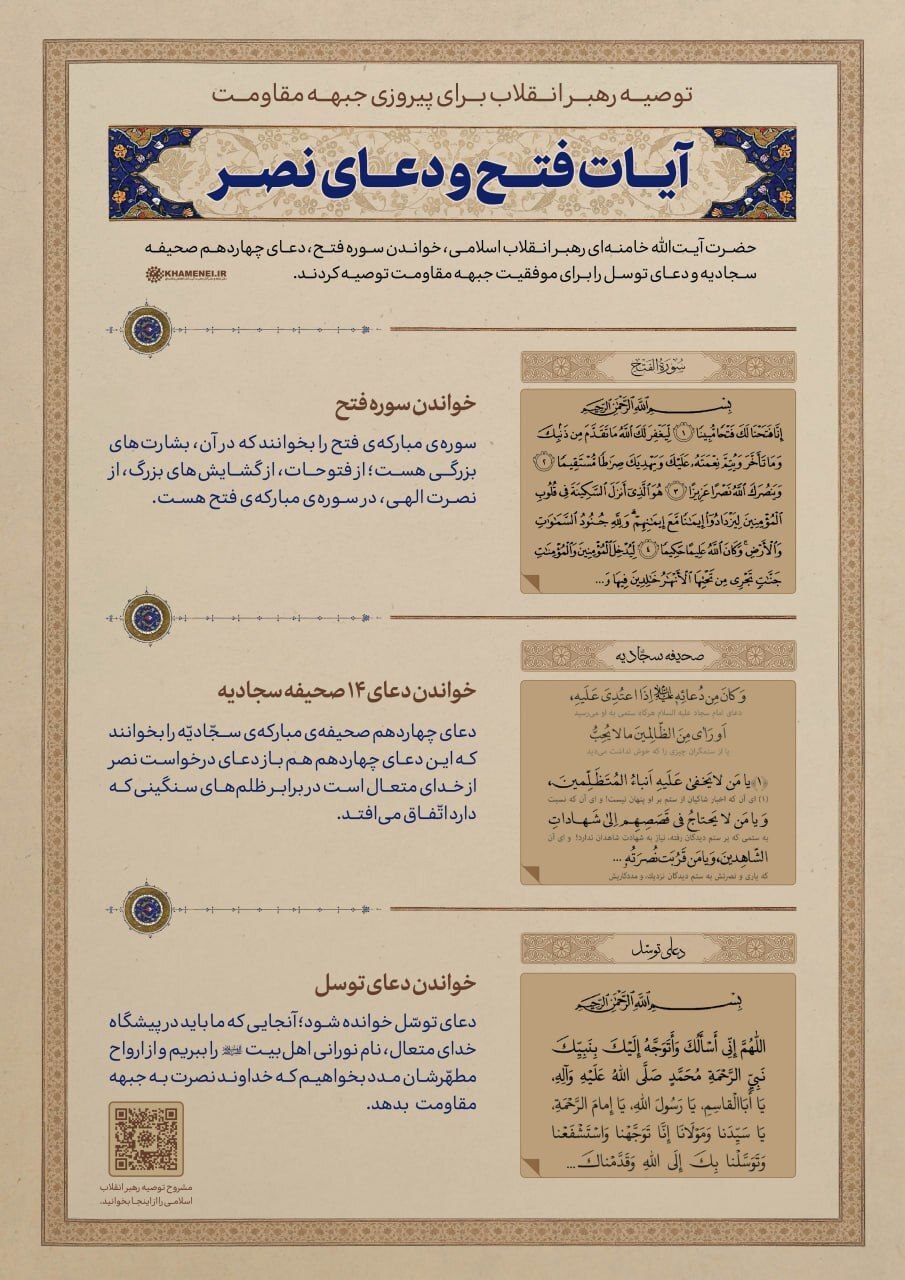 توصیه رهبر انقلاب برای پیروزی جبهه مقاومت
آیات فتح و دعای نصر
حضرت آیت‌الله خامنه‌ای رهبر انقلاب اسلامی، خواندن سوره فتح، دعای چهاردهم صحیفه
سجادیه و دعای توسل را برای موفقیت جبهه مقاومت توصیه کردند.
KHAMENEI.IR
سُورَةُ الفَتْح
بِسْمِ اللَّهِ الرَّحْمَٰنِ الرَّحِيمِ
إِنَّا فَتَحْنَا لَكَ فَتْحًا مُّبِينًا ﴿١﴾ لِّيَغْفِرَ لَكَ اللَّهُ مَا تَقَدَّمَ مِن ذَنۢبِكَ
وَمَا تَأَخَّرَ وَيُتِمَّ نِعْمَتَهُۥ عَلَيْكَ وَيَهْدِيَكَ صِرَٰطًا مُّسْتَقِيمًا ﴿٢﴾
وَيَنصُرَكَ اللَّهُ نَصْرًا عَزِيزًا ﴿٣﴾ هُوَ الَّذِىٓ أَنزَلَ السَّكِينَةَ فِى قُلُوبِ
الْمُؤْمِنِينَ لِيَزْدَادُوٓا۟ إِيمَٰنًا مَّعَ إِيمَٰنِهِمْ ۗ وَلِلَّهِ جُنُودُ السَّمَٰوَٰتِ
وَالْأَرْضِ ۚ وَكَانَ اللَّهُ عَلِيمًا حَكِيمًا ﴿٤﴾ لِّيُدْخِلَ الْمُؤْمِنِينَ وَالْمُؤْمِنَٰتِ
جَنَّٰتٍ تَجْرِى مِن تَحْتِهَا الْأَنْهَٰرُ خَٰلِدِينَ فِيهَا وَ...
خواندن سوره فتح
سوره‌ی مبارکه‌ی فتح را بخوانند که در آن، بشارت‌های
بزرگی هست؛ از فتوحات، از گشایش‌های بزرگ، از
نصرت الهی، در سوره‌ی مبارکه‌ی فتح هست.
صحیفه سجّادیه
وَ كَانَ مِن دُعائِهِ علیه‌السلام إِذَا اعتُدِیَ عَلَیهِ،
دعای امام سجاد علیه السلام هرگاه ستمی به او می‌رسید
اَو رَاى مِنَ الظّالِمینَ ما لا یُحِبُّ
یا از ستمگران چیزی را که خوش نداشت می‌دید
﴿۱﴾ یا مَن لا یَخفیٰ عَلَیهِ اَنباءُ المُتَظَلِّمینَ،
(۱) ای آن که اخبار شاکیان از ستم بر او پنهان نیست! و ای آن که نسبت
وَ یا مَن لا یَحتاجُ فی قَصَصِهِم اِلیٰ شَهاداتِ
به ستمی که بر ستم دیدگان رفته، نیاز به شهادت شاهدان ندارد! و ای آن
الشّاهِدینَ، وَ یا مَن قَرُبَت نُصرَتُهُ ...
که یاری و نصرتش به ستم دیدگان نزدیک، و مددکاریش
خواندن دعای ۱۴ صحیفه سجادیه
دعای چهاردهم صحیفه‌ی مبارکه‌ی سجّادیّه را بخوانند
که این دعای چهاردهم هم باز دعای درخواست نصر
از خدای متعال است در برابر ظلم‌های سنگینی که
دارد اتّفاق می‌افتد.
دعای توسّل
بِسْمِ اللَّهِ الرَّحْمَٰنِ الرَّحِيمِ
اَللّٰهُمَّ إِنِّي أَسْأَلُكَ وَأَتَوَجَّهُ إِلَيْكَ بِنَبِيِّكَ
نَبِيِّ الرَّحْمَةِ مُحَمَّدٍ صَلَّى اللهُ عَلَيْهِ وَآلِهِ،
يَا أَبَا الْقَاسِمِ، يَا رَسُولَ اللهِ، يَا إِمَامَ الرَّحْمَةِ،
يَا سَيِّدَنَا وَمَوْلَانَا إِنَّا تَوَجَّهْنَا وَاسْتَشْفَعْنَا
وَتَوَسَّلْنَا بِكَ إِلَى اللهِ وَقَدَّمْنَاكَ ...
خواندن دعای توسل
دعای توسّل خوانده شود؛ آنجایی که ما باید در پیشگاه
خدای متعال، نام نورانی اهل بیت علیهم‌السلام را ببریم و از ارواح
مطهّرشان مدد بخواهیم که خداوند نصرت به جبهه
مقاومت بدهد.
مشروح توصیه رهبر انقلاب
اسلامی را از اینجا بخوانید.